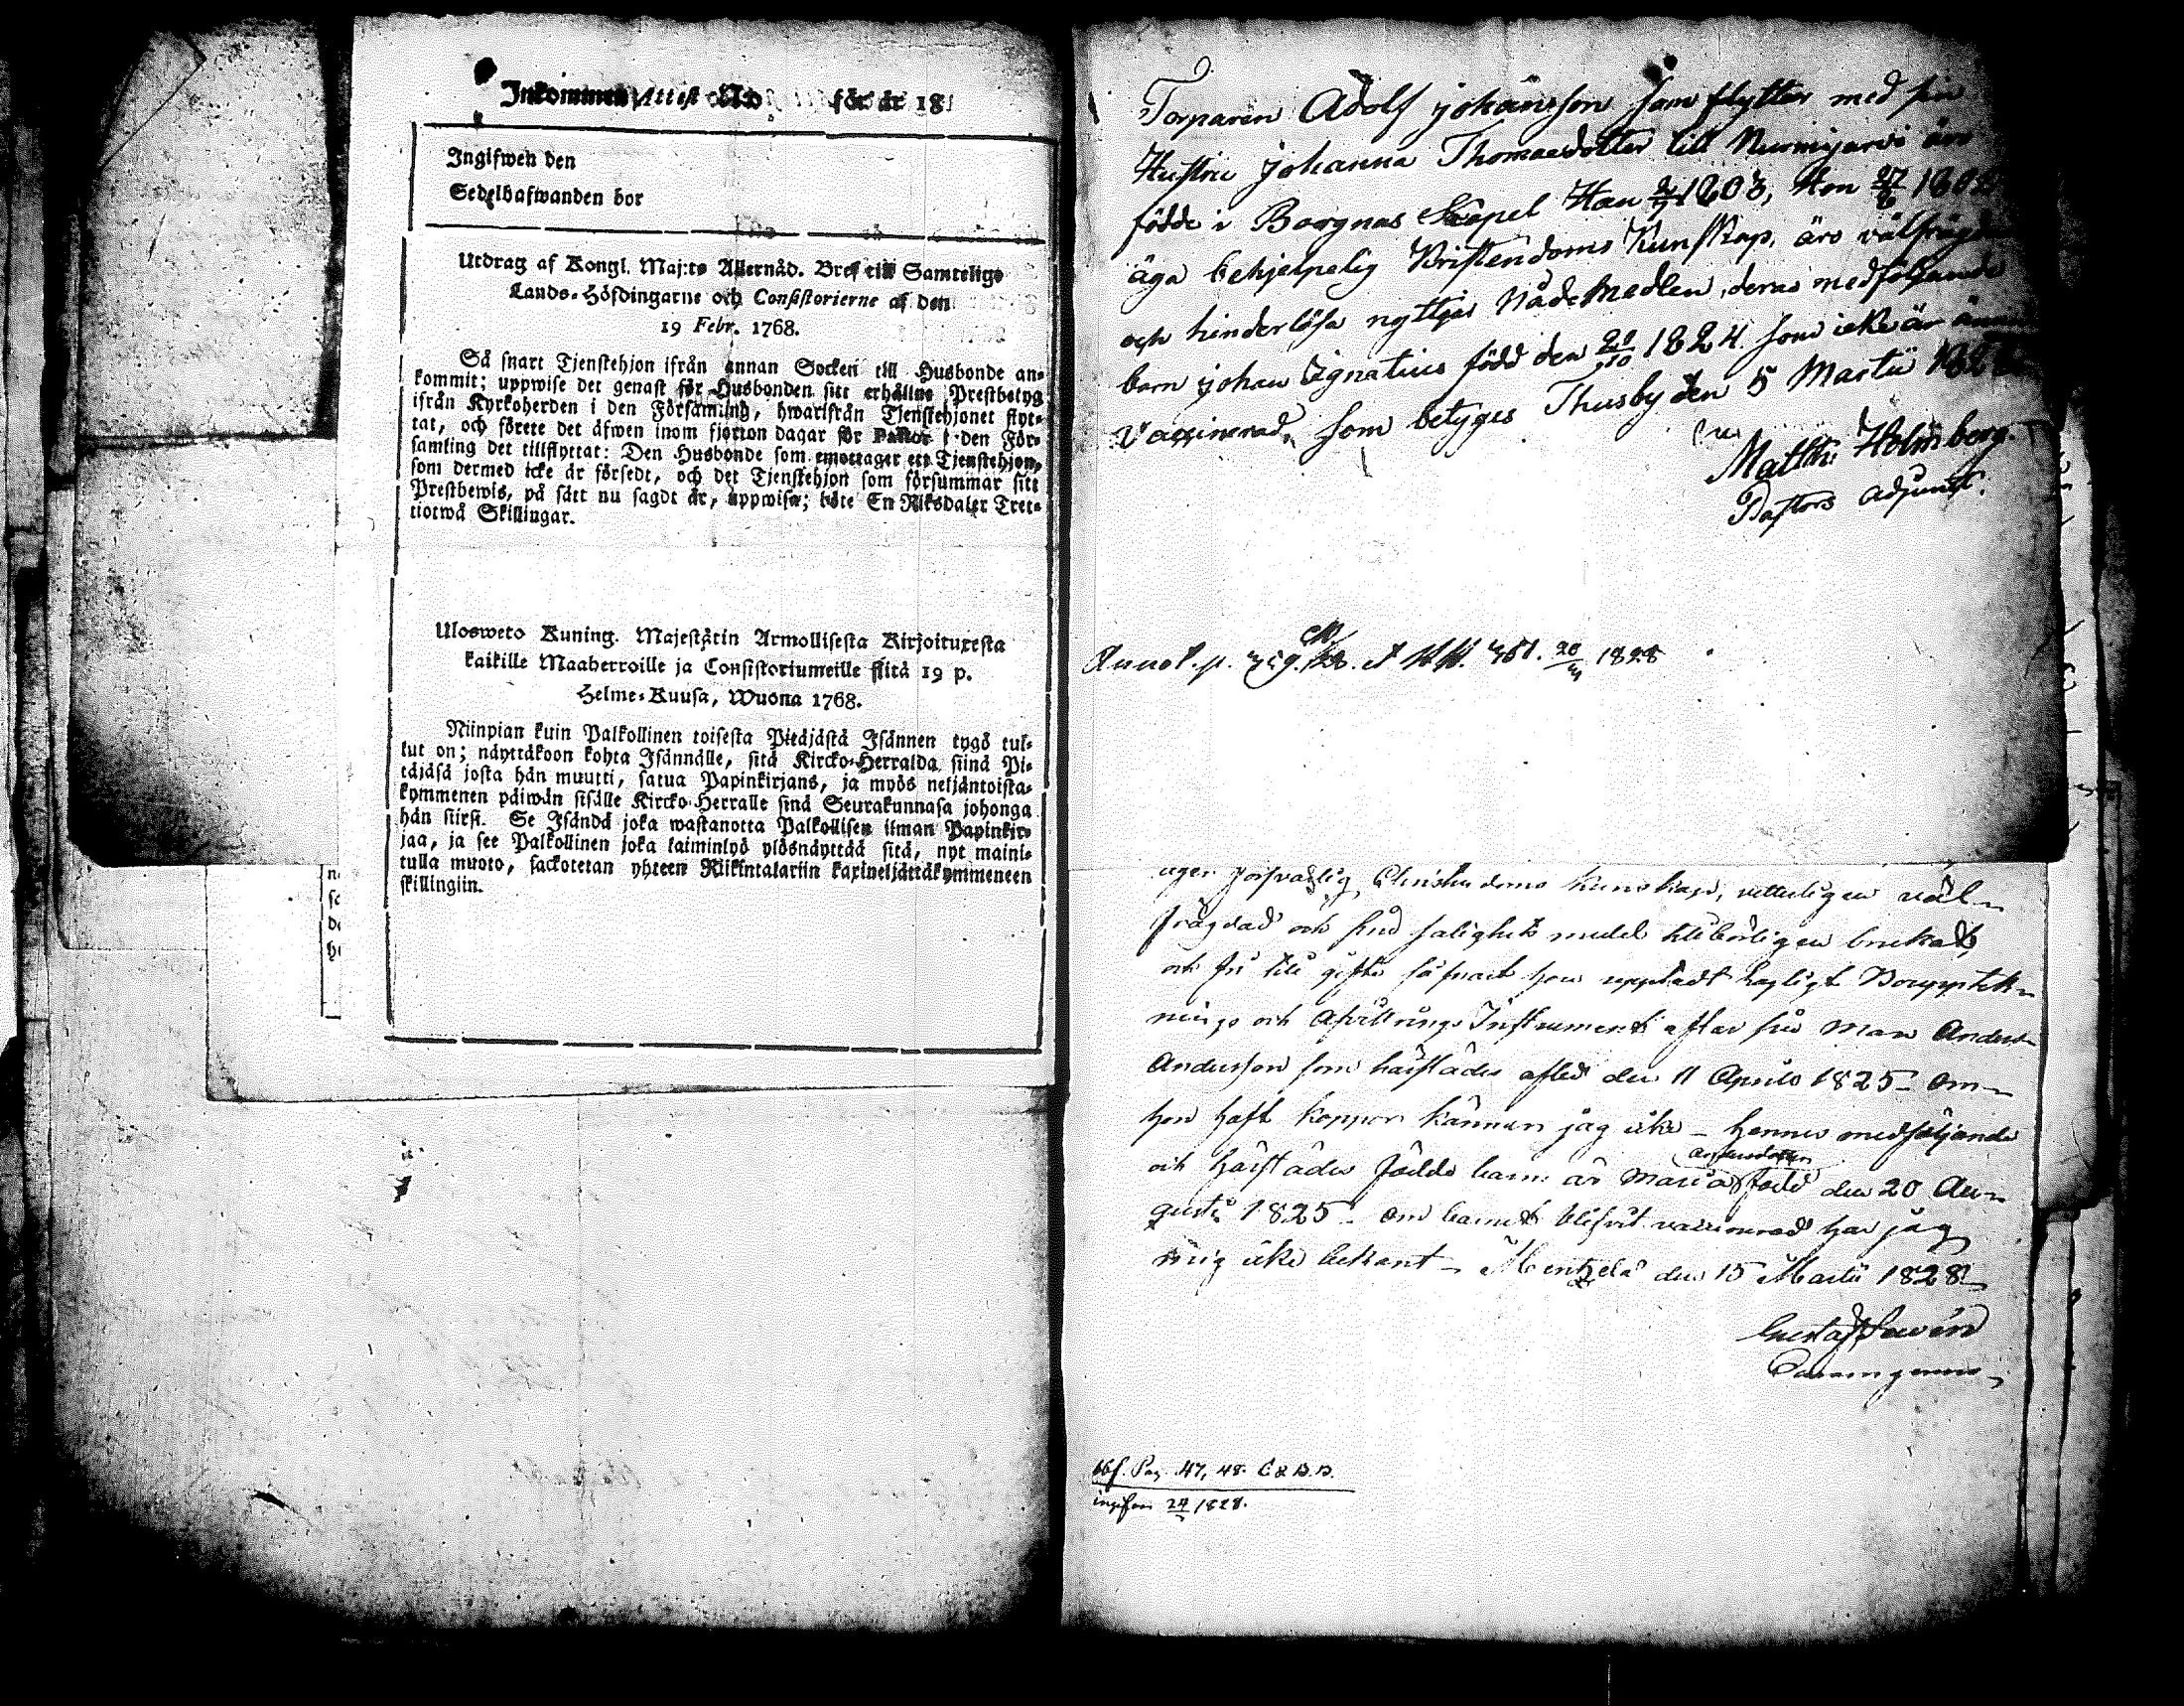 Inkommen Attest No för år 18
Ingifwen den
Sedelhafwanden bor
Utdrag af Kongl. Maj:ts Allernåd. Bref till Samtelige
Lands-Höfdingarne och Consistorierne af den
19 Febr. 1768.
Så snart Tjenstehjon ifrån annan Socken till Husbonde an-
kommit; uppwise det genast för Husbonden sitt erhållne Prestbetyg
ifrån Kyrkoherden i den Församling, hwarifrån Tjenstehjonet flyt-
tat, och förete det äfwen inom fjorton dagar för Pastor i den För-
samling det tillflyttat: Den Husbonde som emottager ett Tjenstehjon,
som dermed icke är försedt, och det Tjenstehjon som försummar sitt
Prestbewis, på sätt nu sagdt är, uppwisa; böte En Riksdaler Tret-
tiotwå Skillingar.
Ulosweto Kuning. Majestätin Armollisesta Kirjoituxesta
kaikille Maaherroille ja Consistoriumeille siitä 19 p.
Helme-Kuusa, Wuona 1768.
Niinpian kuin Palkollinen toisesta Pitäjästä Isännen tygö tul-
lut on; näyttäkoon kohta Isännälle, sitä Kircko-Herralda siinä Pi-
täjäsä josta hän muutti, satua Papinkirjans, ja myös neljäntoista-
kymmenen päiwän sisälle Kircko-Herralle sinä Seurakunnasa johonga
hän siirsi. Se Isändä joka wastanotta Palkollisen ilman Papinkir-
jaa, ja see Palkollinen joka laiminlyö ylösnäyttää sitä, nyt maini-
tulla muoto, sackotetan yhteen Riikintalariin kaxineljättäkymmeneen
skillingiin.
Torparen Adolf Johansson som flyttar med sin
Hustru Johanna Thomaedotter till Nurmijarvi äro
födde i Borgnas Capel Han 2/7 1803, Hon 27/6
äga behjelpelig Kristendoms Kunskap, äro välfrägdade
och hinderlösa nyttjat Nåde Medlen, deras medföljande
barn Johan Ignatius född den 20/10 1824. som icke är
Vaccinerad, som betyges Thusby den 5 Martii
Matths Holmberg.
Pastors Adjunct.
Annot. p. 351. 20/3 1828
eger försvarlig Christendoms kunskap, vetterligen väl-
frägdad och sina salighets medel tillbörligen brukadt,
och fri till gifte såsnart hon upptedt lagligt Bouppteck-
nings och Afvittrings Instrument efter sin man Anders
Andersson som härstädes afled den 11 Aprils 1825 - Om
hon haft koppor känner jag icke - hennes medföljande
och härstädes födde barn är Maria Andersdotter född den 20 Au-
gusti 1825 - om barnet blifvit vaccinerad har jag
mig icke bekant - Mentzelä den 15 Martii 1828
Gustaf
Pag. 47, 48.
ingifven 24/3 1828.